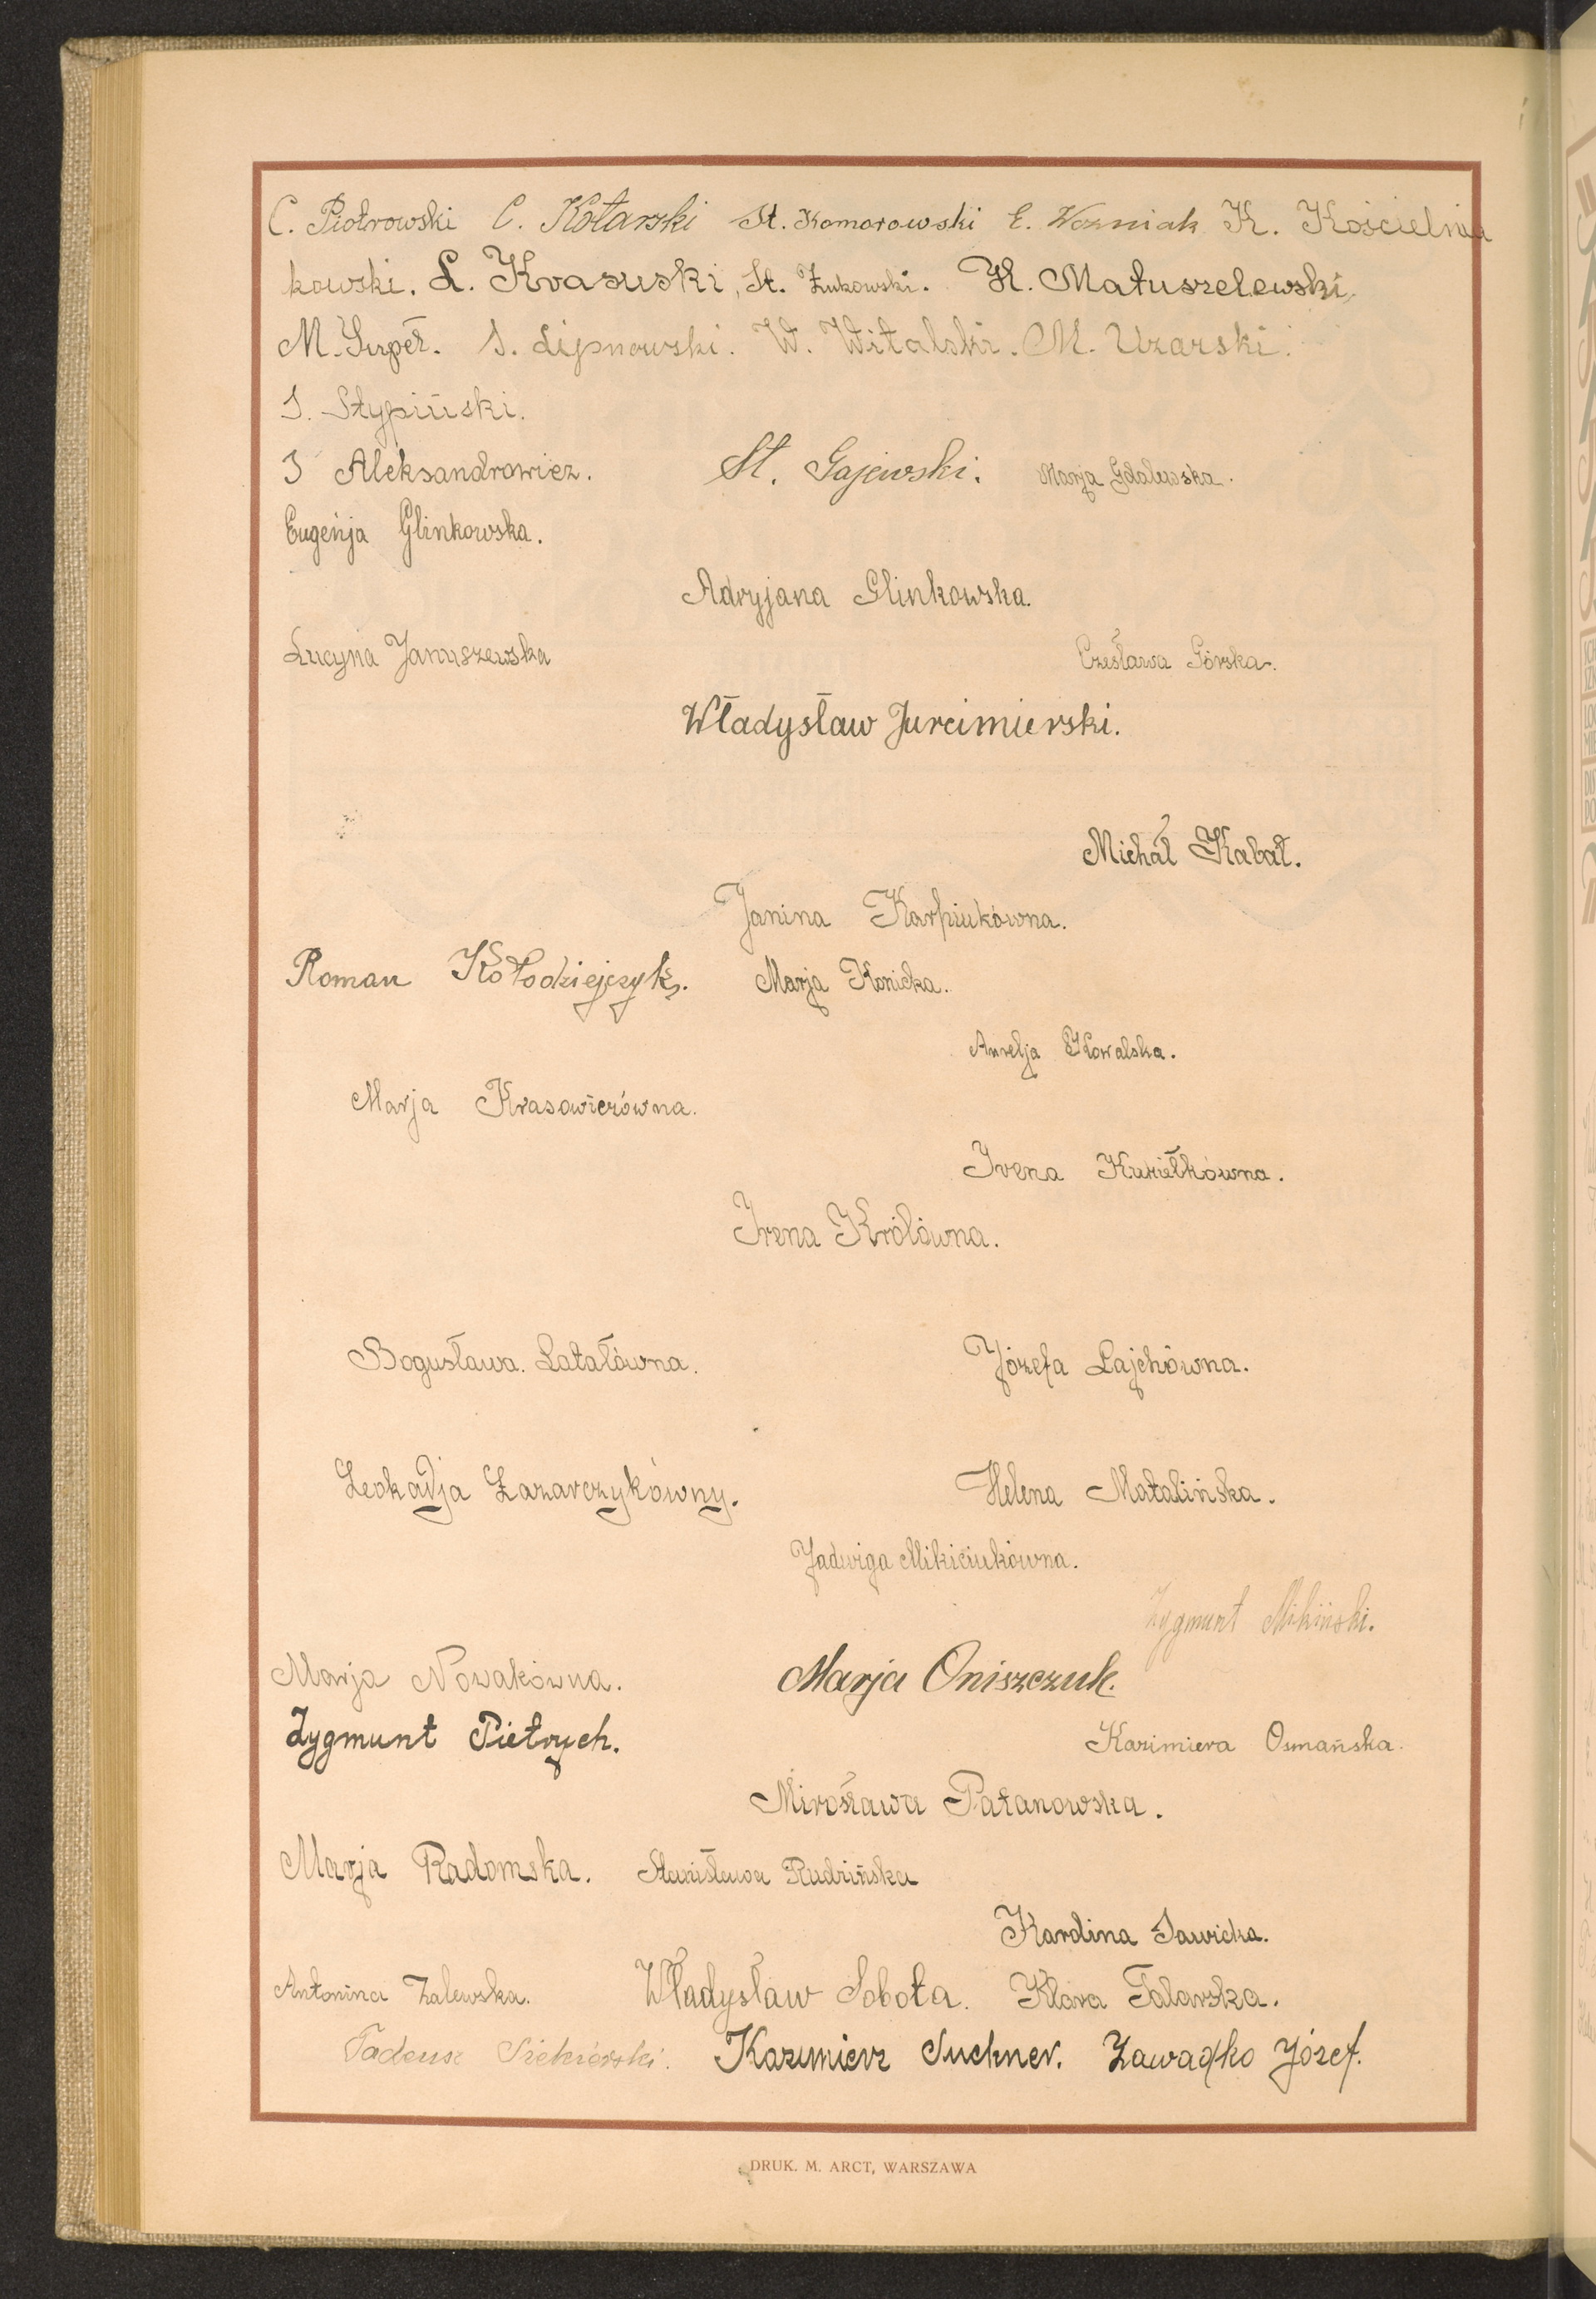 C. Piotrowski C. Kotarski St. Komorowski E. Wozniak K. Kościelnia
kowski. L. Krasuski, St. Żukowski. H. Matuszelewski,
M. Surpeł. S. Lipnowski. W. Witalski. M. Uzarski.
J. Stypiński.
J Aleksandrowicz. St. Gajewski. Marja Gdalewska.
Eugenja Glinkowska.
Adryjana Glinkowska.
Lucyna Januszewska Czesława Górska.
Władysław Jurcimierski.
Michał Kabat.
Janina Karpiukówna.
Roman Kołodziejczyk. Marja Konicka.
Aurelja Kowalska.
Marja Krasowiczówna.
Irena Kuziełkówna.
Irena Królówna.
Bogusława. Latałówna. Józefa Lajchówna.
Leokadja Łazarczykówny. Helena Matalińska.
Jadwiga Mikiciukówna.
Zygmunt Mikiński.
Marja Nowakówna. Marja Oniszczuk.
Zygmunt Pietrych. Kazimiera Osmańska.
Mirosława Patanowska.
Marja Radomska. Stanisława Rudzińska
Karolina Sawicka.
Antonina Zalewska. Władysław Sobota. Klara Talarska.
Tadeusz Siekierski. Kazimierz Suchner. Zawadko Józef.
DRUK. M. ARCT, WARSZAWA